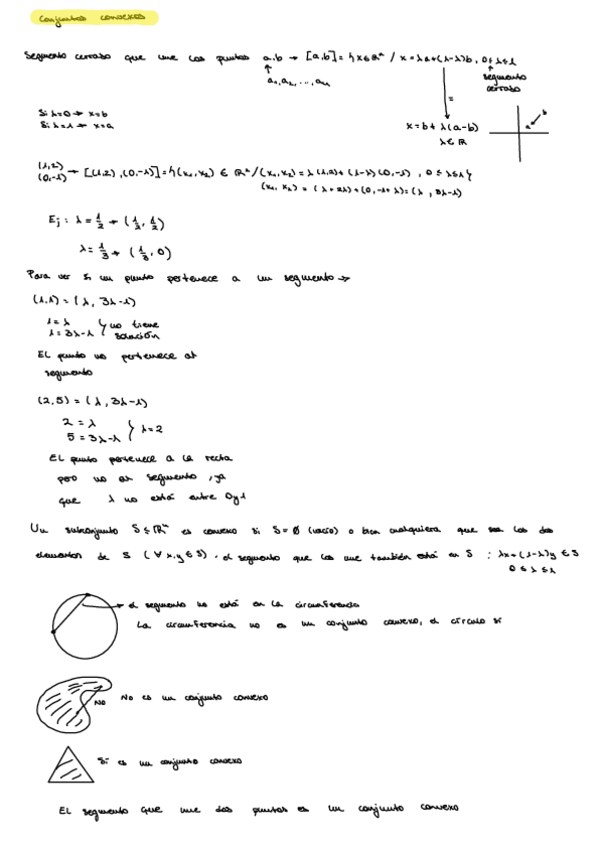 Conjuntos convexos
Segmento cerrado que une los puntos a,b → [a,b] = {x∈ℝⁿ / x=λa+(1-λ)b, 0≤λ≤1
a₁,a₂,...,aₙ
segmento cerrado
Si λ=0 → x=b
Si λ=1 → x=a
=
x=b+λ(a-b)
λ∈ℝ
a
b
(1,2)
(0,-1) → [(1,2),(0,-1)] = {(x₁,x₂) ∈ ℝ² / (x₁,x₂) = λ(1,2)+(1-λ)(0,-1), 0≤λ≤1}
(x₁,x₂) = (λ+2λ)+(0,-1+λ) = (λ, 3λ-1)
Ej: λ=1/2 → (1/2, 1/2)
λ=1/3 → (1/3, 0)
Para ver si un punto pertenece a un segmento →
(1,1) = (λ, 3λ-1)
1=λ
1=3λ-1 } no tiene solución
El punto no pertenece al
segmento
(2,5) = (λ, 3λ-1)
2=λ
5=3λ-1 } λ=2
El punto pertenece a la recta
pero no al segmento, ya
que λ no está entre 0 y 1
Un subconjunto S ≤ ℝⁿ es convexo si S=∅ (vacío) o bien cualquiera que sea los dos
elementos de S (∀ x,y ∈ S), el segmento que los une también está en S : λx+(1-λ)y ∈ S
0≤λ≤1
→ el segmento no está en la circunferencia
La circunferencia no es un conjunto convexo, el círculo sí
No
No es un conjunto convexo
Sí es un conjunto convexo
El segmento que une dos puntos es un conjunto convexo